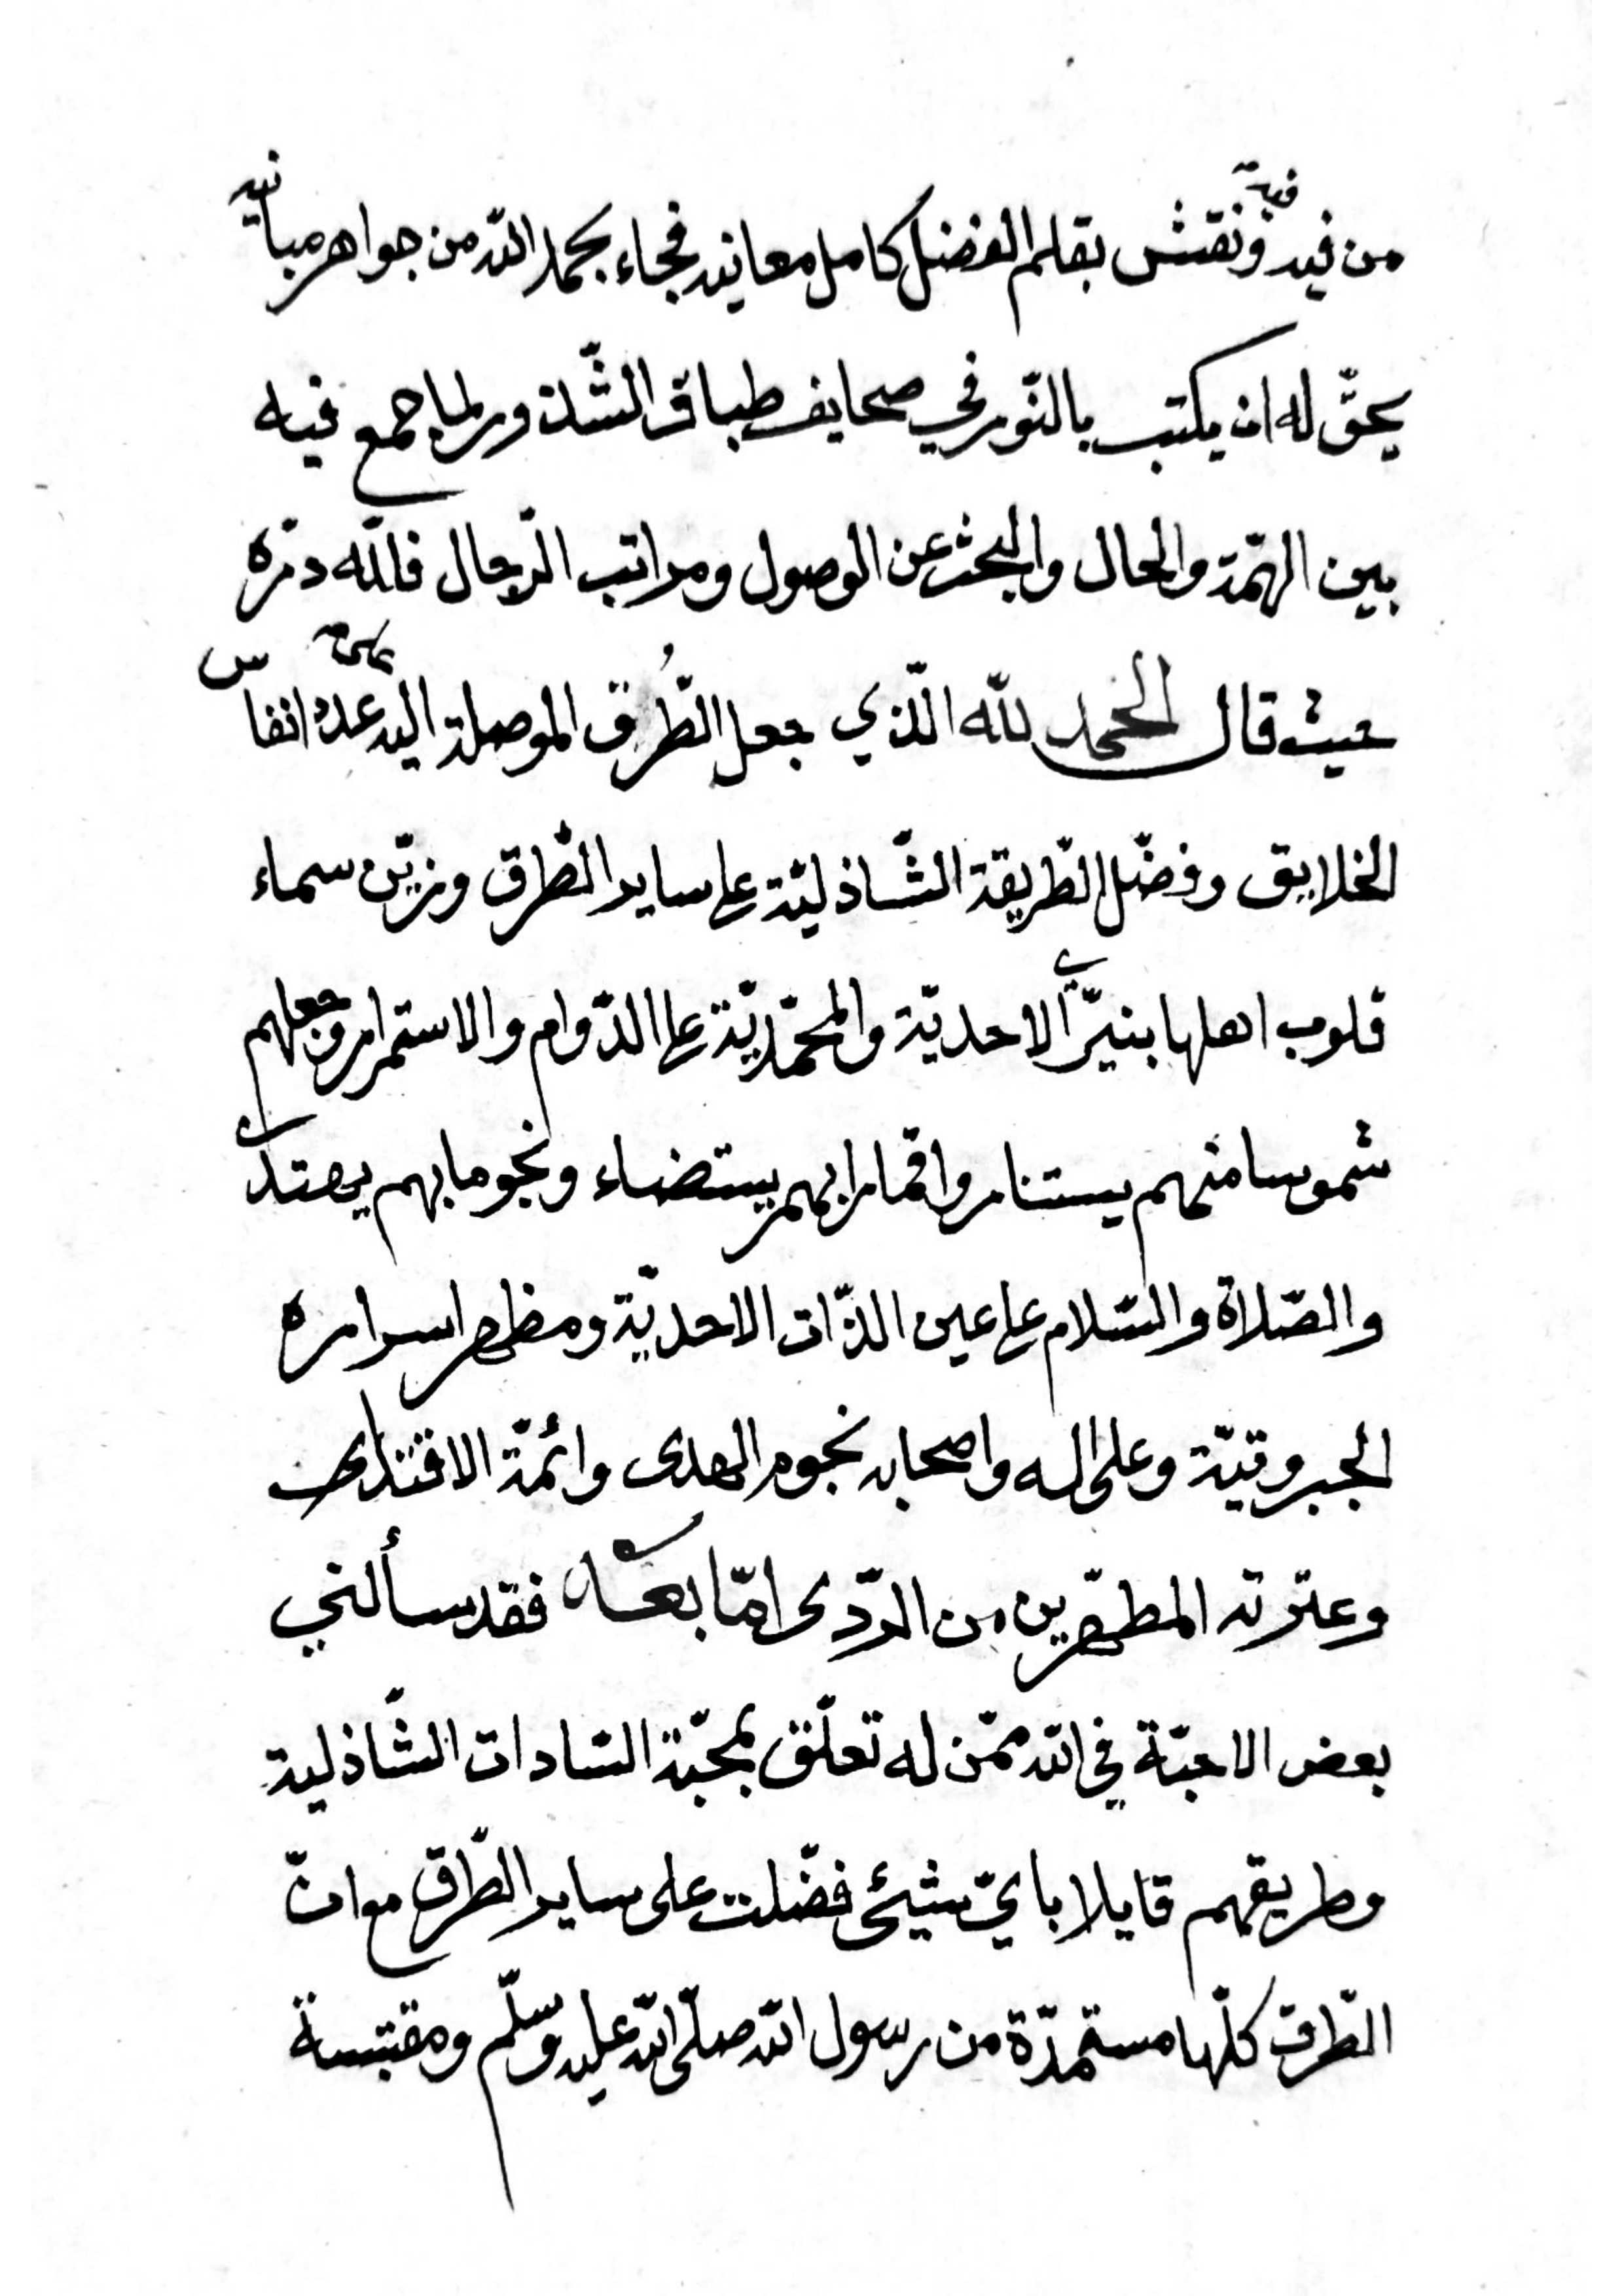 من فيه ونقش بقلم الفضل كامل معانيه فجاء بحمد الله من جواهر مبانيه
يحقّ له ان يكتب بالنّور في صحايف طباق الشّذور لما جمع فيه
بين الهمّة والحال والبحث عن الوصول ومراتب الرّجال فللّه درّه
حيث قال الحمد للّه الّذي جعل الطّرق الموصلة اليه عدد انفاس
الخلايق وفضّل الطّريقة الشّاذليّة على ساير الطّرق وزيّن سماء
قلوب اهلها بنيّري الاحديّة والمحمّديّة على الدّوام والاستمرار وجعلهم
شموسا منهم يستنار واقمارا بهم يستضاء ونجوما بهم يهتدى
والصّلاة والسّلام على عين الذّات الاحديّة ومظهر اسراره
الجبروتيّة وعلى اله واصحابه نجوم الهدى وائمّة الاقتدا
وعترته المطهّرين من الرّدى امّا بعد فقد سألني
بعض الاحبّة في الله ممّن له تعلّق بمحبّة السّادات الشّاذلية
وطريقهم قايلا بايّ شيئ فضّلت على ساير الطّرق مع انّ
الطّرق كلّها مستمدّة من رسول الله صلّى الله عليه وسلّم ومقتبسة